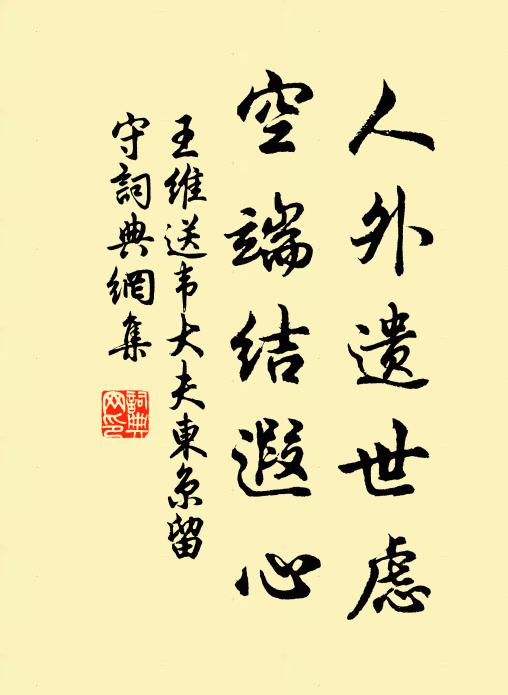 人外遗世虑
空端结遐心
王维送韦大夫東京留
守詞典網集
詞典
网印